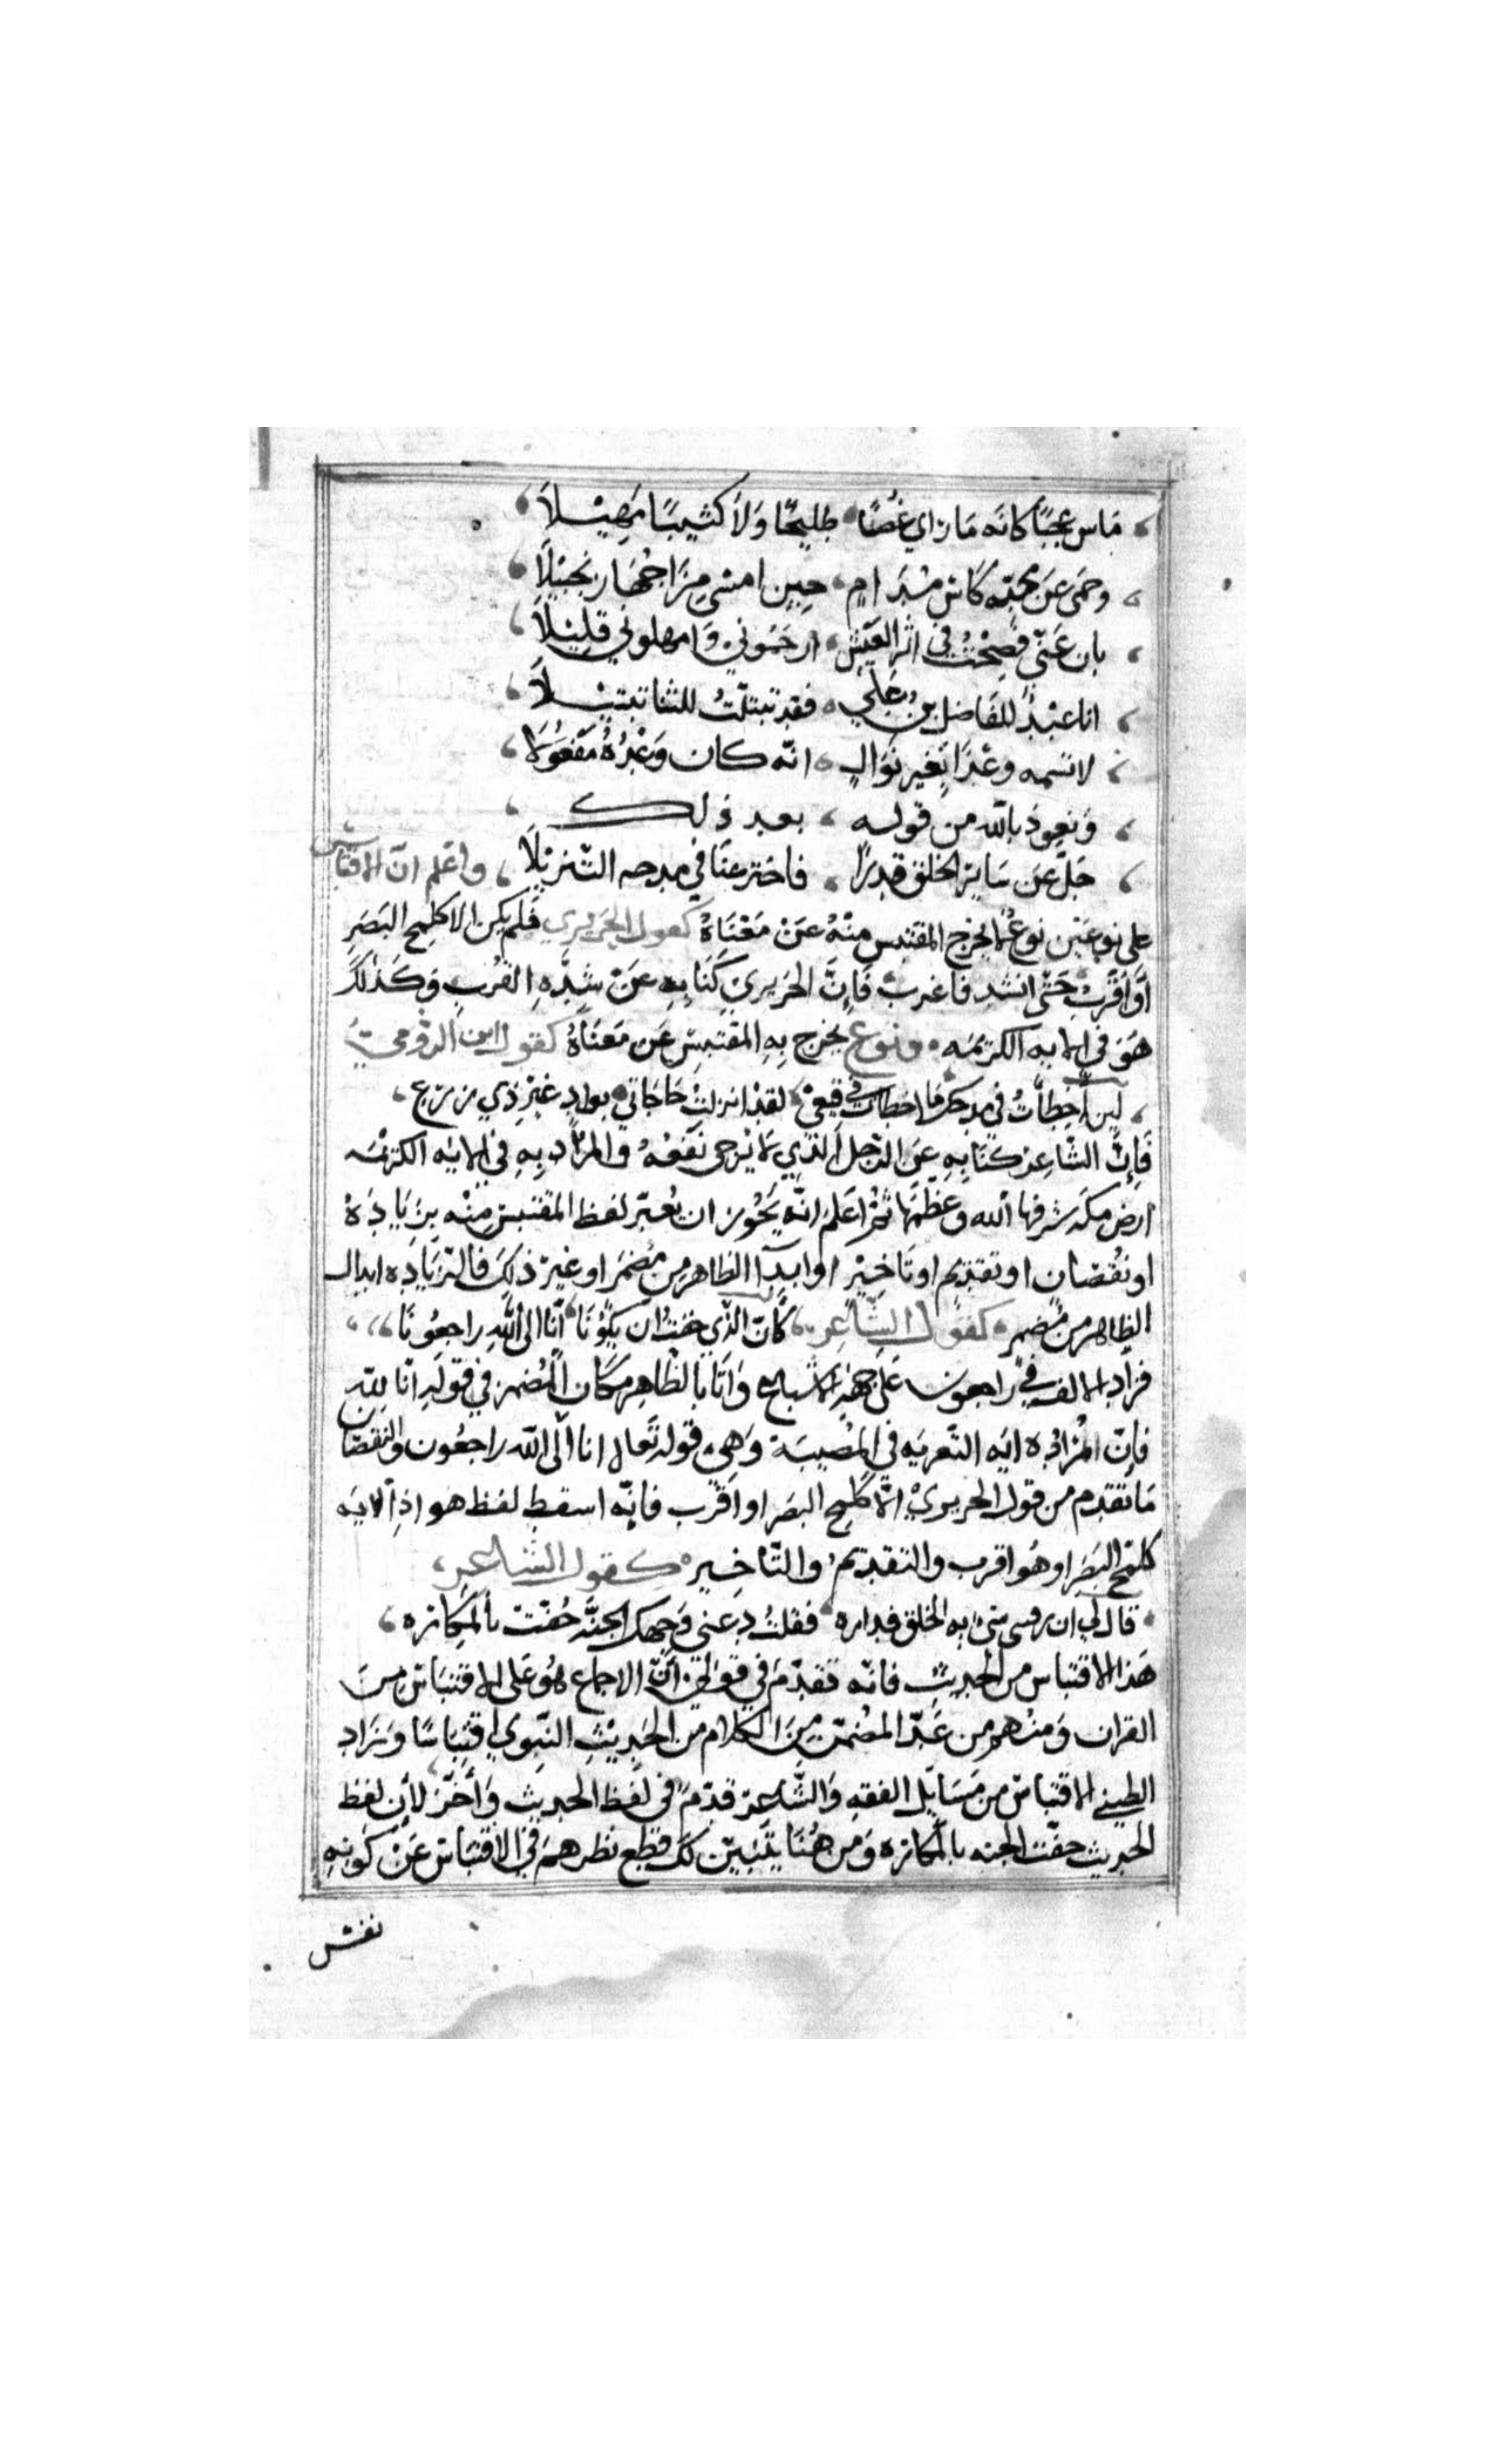 ماس عجبًا كانه ما راي غُصنًا طليحًا وَلاَ كثيبًا مَهِيْلاَ
وحمى عَن مُحبّه كَاسَ مُدَامٍ حِين امسى مِزَاجُهَا زنجبيْلاَ
بان عَنّي فَصِحْتُ في اثر العَيْسِ ارحَمُوني وَامهلوني قَلِيْلاَ
انا عَبْدٌ للفَاضل بن عَلي فقد تبتّلتُ للثنا تبتِيْلاَ
لا تسمه وعْدًا بغير نَوَالٍ انّه كان وَعْدُهُ مَفْعُولاَ
وَنعوذ بالله من قوله بعد ذلك
جَلَّ عَن سَاير الخلق قدرًا فاخترعنَا في مدحه التّنزيْلاَ واعْلم انّ الاقتباس
على نوعَين نوع لم يخرج المقتبس منْهُ عَن مَعْنَاهُ كقول الحريري فَلم يكن الا كلمح البَصَرِ
اَوْ اَقْرَبُ حَتّى انشد فاغرب فَإنّ الحَرِيري كَنَا بِهِ عَنْ شِدّةِ القُرْبِ وَكَذلك
هُوَ في الايه الكرَيمَه ونوع يخرج بِهِ المقتبس عَن مَعنَاهُ كقول ابن الرّوميّ
لين اخطَأتُ في مدحك مَا اخطات في مَنعي لقدْ انزلتُ حَاجَاتي بوادٍ غَيْر ذِي زرع
فَإنّ الشّاعر كَنَا بِهِ عَن الرّجل الّذي لا يُرجى نَفْعُهُ والمرَاد بِهِ في الايَه الكرَيمَه
ارض مكه شرفها الله وعظّمَهَا ثُمّ اعْلم انّه يَجُوز ان يُغيّر لفظ المقتبس مِنْهُ بِزِيَادَهْ
او نقُصَان او تقديم او تَاخِيْر او ابدال الظاهر من مُضمَر او غير ذلِكَ فالزّيَادِه ابدال
الظاهر من مُضمر كقول الشّاعِر كَانَ الّذي خفتُ ان يكُونَا انّا الى الله راجعُونَا
فزاد الالف في راجعون عَلى جهة الاشباع وَاتَا بالظّاهِر مكَان المُضمر في قوله انا لله
فإنّ المُرَاد به ايه التّعزيَه في المُصيبَة وَهِي قوله تعالى انا الى الله راجعُون والنقصَان
مَا تقدم من قول الحريريْ الاّ كلمح البصَر او اقرب فانّه اسقط لفظ هو اذ الايَه
كلمح البَصَر او هُوَ اقرب والتقديم والتّاخِير كقول الشاعر
قال لي ان رقيبي سيّئ الخلق فداره فقلتُ دعني وَجهك الجنّه حُفّتْ بالمكَاره
هَذا الاقتباس من الحَديث فانّه تقدّمَ في قولي انّ الاجماع هُوَ عَلى الاقتبَاس مِنَ
القران وَمنهم من عَدّ المُضمّن مِنَ الكلام من الحَدِيْثِ النّبَوي اقتِبَاسًا وَزَاد
الطيبي الاقتبَاس من مَسَايل الفقهِ وَالشّاعِر قدّمَ في لَفظ الحديث وَأَخّرَ لأن لفظ
الحديث حفّت الجنه بالمكاره وَمن هُنَا يتَبَيّن لكَ قطع نظرهم في الاقتبَاس عَنْ كَونهِ
نفس